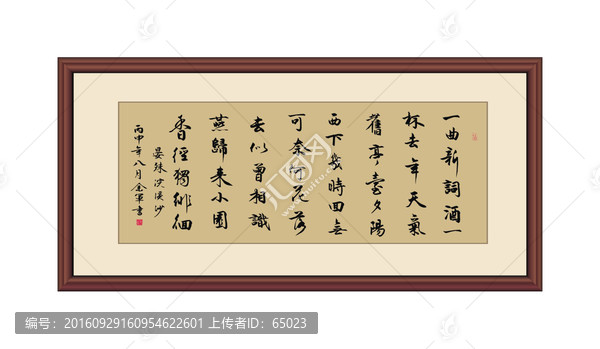 一曲新詞酒一
杯去年天氣
舊亭臺夕陽
西下幾時回無
可奈何花落
去似曾相識
燕歸來小園
香徑獨徘徊
晏殊浣溪沙
丙申年八月金軍書
编号：20160929160954622601 上传者ID：65023